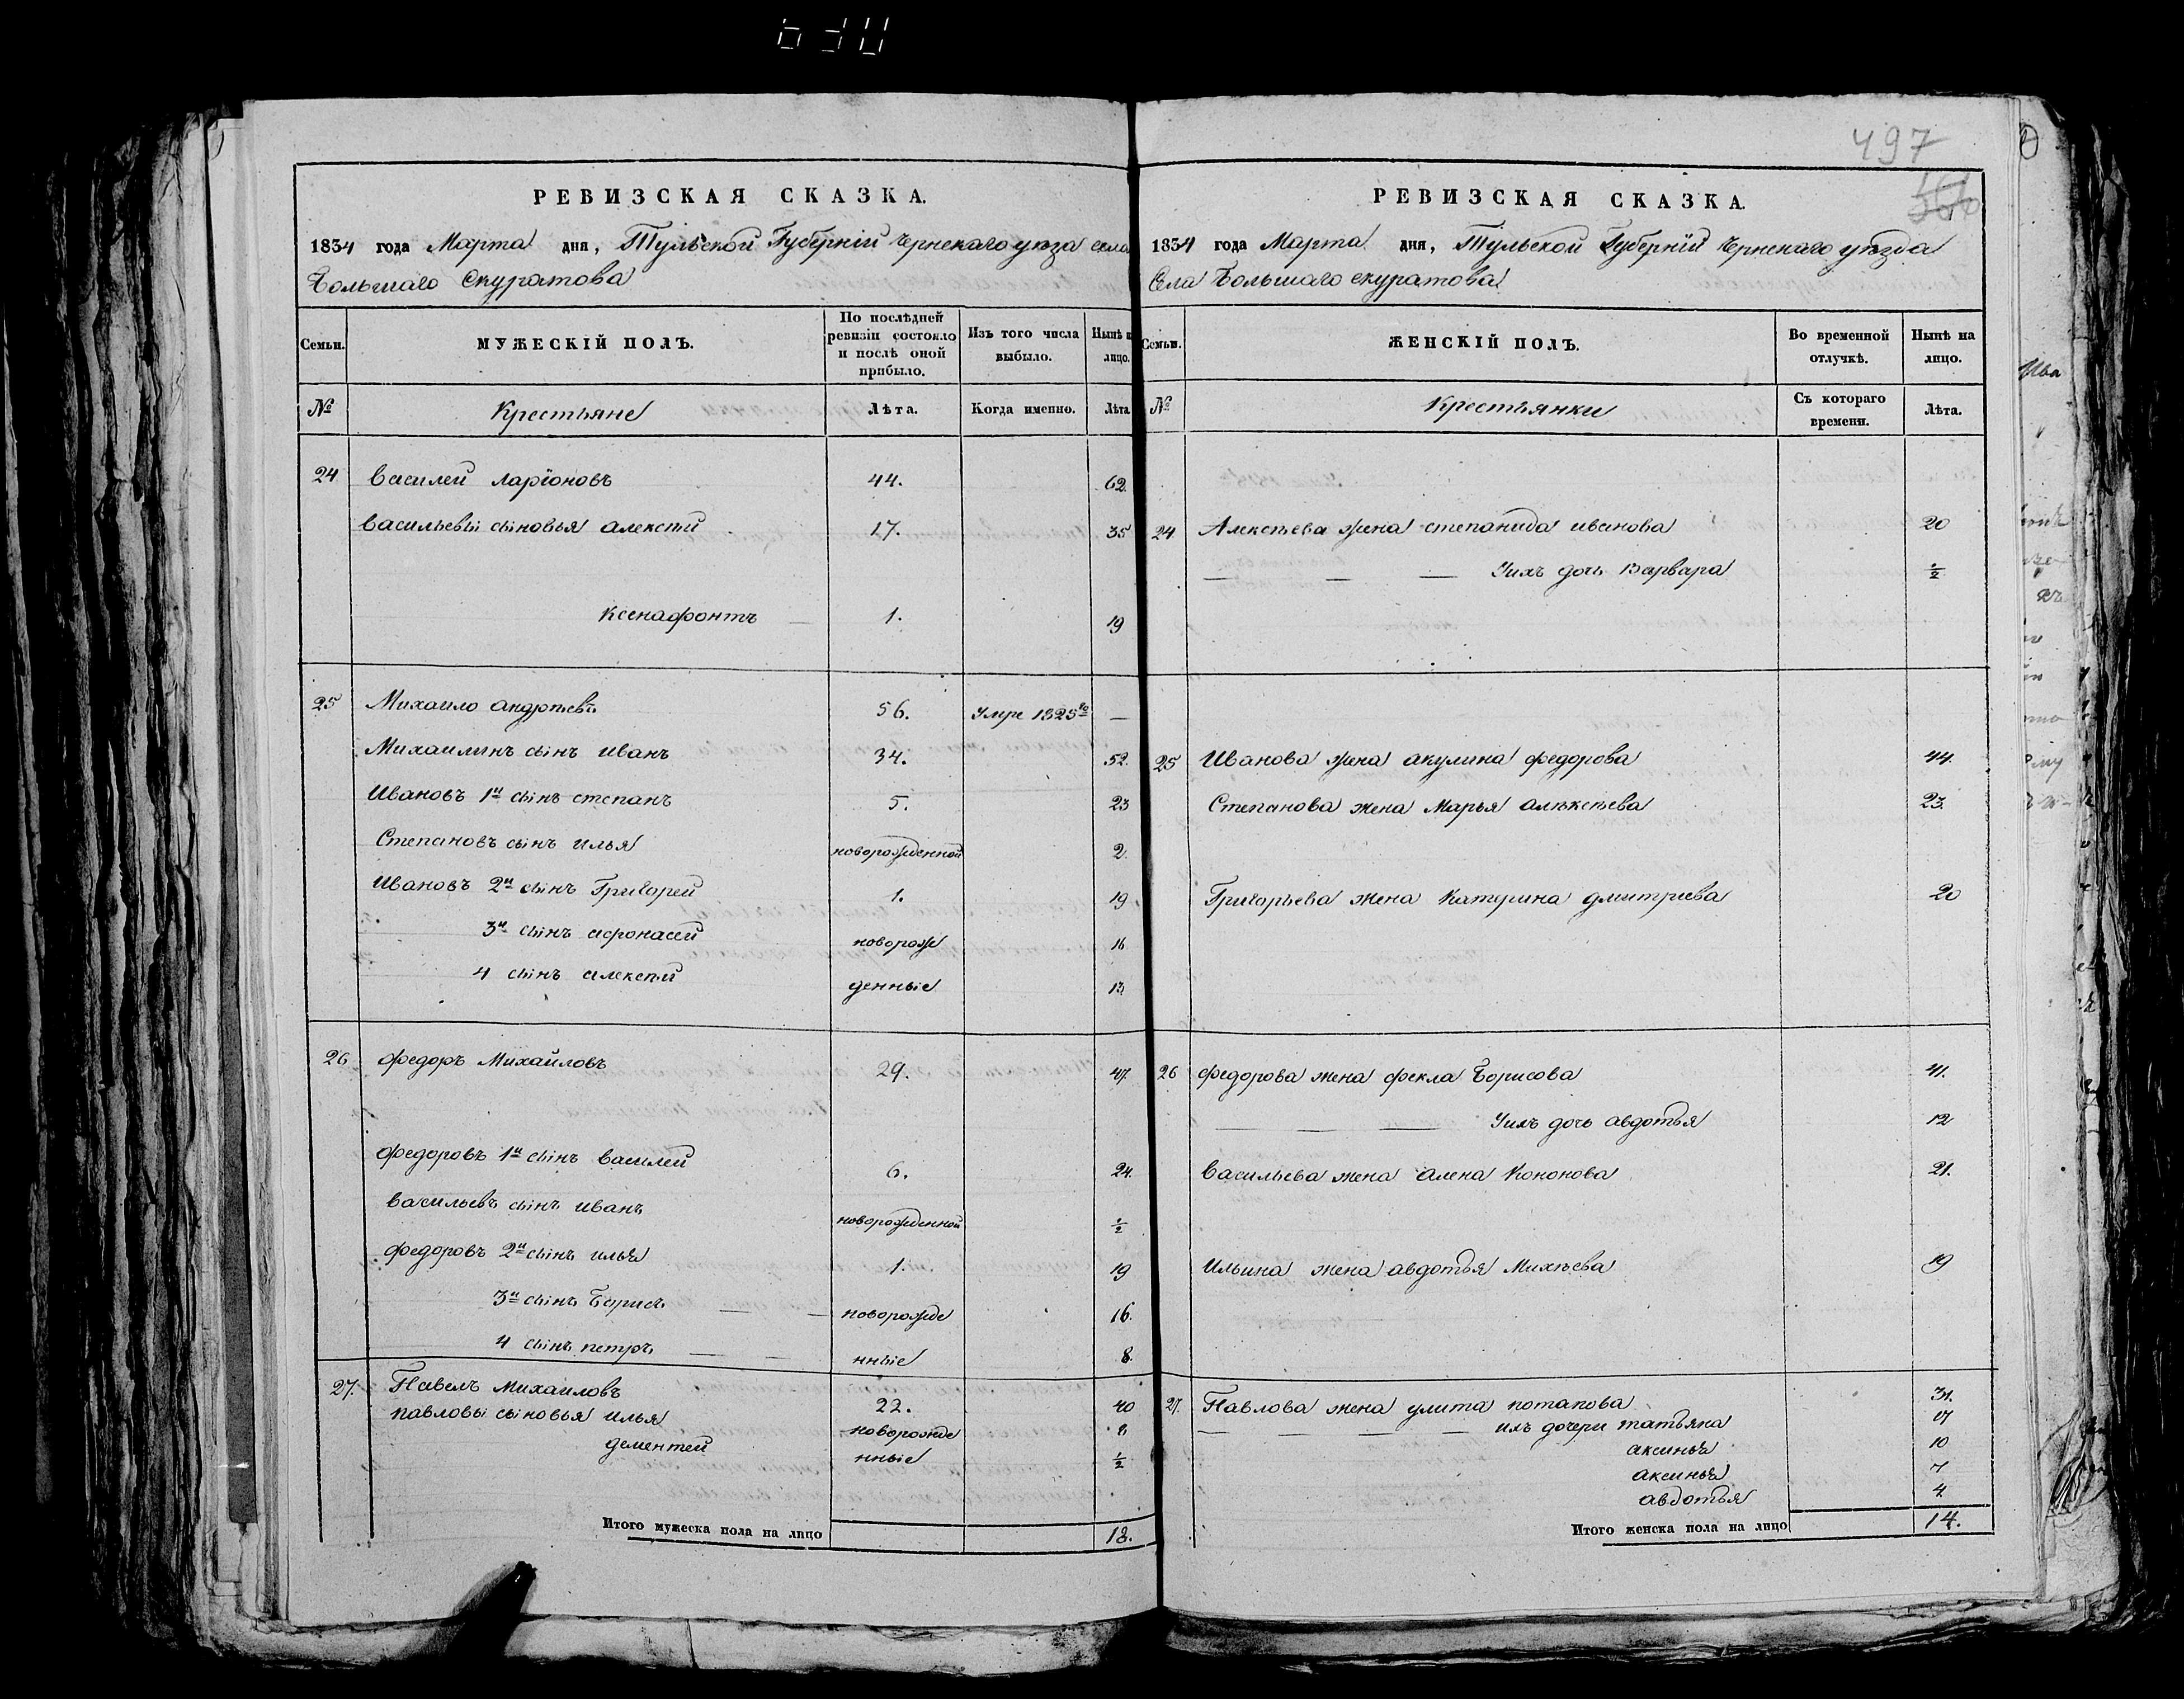 497
РЕВИЗСКАЯ СКАЗКА.
1834 года Марта дня, Тульской Губерніи Чернскаго уѣза села
Большаго Скуратова
Семьи. МУЖЕСКІЙ ПОЛЪ. По послѣдней ревизіи состояло и послѣ оной прибыло. Изъ того числа выбыло. Нынѣ н лицо.
№ Крестьяне Лѣта. Когда именно. Лѣта
24 Василей Ларіоновъ 44. 62.
Васильевы сыновья алексѣй 17. 35
Ксенафонтъ 1. 19
25 Михаило андрѣевъ 56. Умре 1825го —
Михаилинъ сынъ иванъ 34. 52.
Ивановъ 1й сынъ степанъ 5. 23
Степановъ сынъ илья новорожденной 2.
Ивановъ 2й сынъ Григорей 1. 19
3й сынъ афонасей новорож 16
4 сынъ алексѣй денные 13
26 федоръ Михайловъ 29. 47.
федоровъ 1й сынъ василей 6. 24.
васильевъ сынъ иванъ новорожденной ½
федоровъ 2й сынъ илья 1. 19
3й сынъ Борисъ — — новорожде 16.
4 сынъ петръ — — нные 8.
27. Павелъ михаиловъ 22. 40
павловы сыновья илья новорожде 8
дементей нные ½
Итого мужеска пола на лицо 18.
РЕВИЗСКАЯ СКАЗКА.
1834 года Марта дня, Тульской Губерніи Чернскаго уѣзда
Села Большаго скуратова
Семьи. ЖЕНСКІЙ ПОЛЪ. Во временной отлучкѣ. Нынѣ на лицо.
№ Крестьянки Съ котораго времени. Лѣта.
24. Алексѣева жена степанида иванова 20
— — — Уихъ дочь Варвара ½
25 Иванова жена акулина федорова 44.
Степанова жена Марья алѣксѣева 23.
Григорьева жена Катерина дмитриева 20
26 федорова жена фекла Борисова 41.
— — — Уихъ дочь авдотья 12
Васильева жена алена Кононова 21.
Ильина жена авдотья Михѣева 19
27. Павлова жена улита потапова 31.
— — — — ихъ дочери татьяна 17
аксинья 10
аксинья 7
авдотья 4.
Итого женска пола на лицо 14.